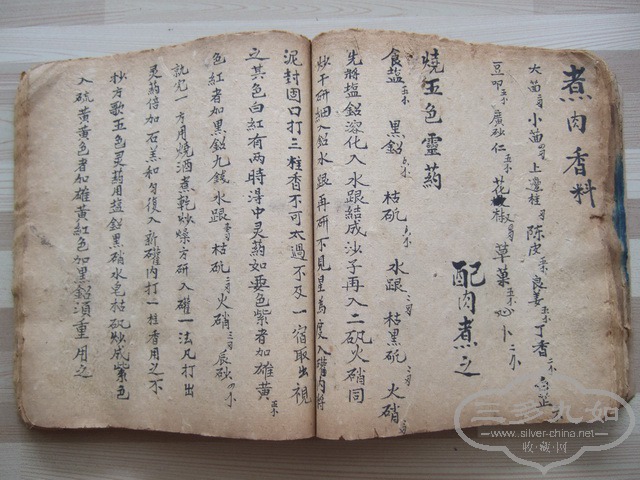 煮肉香料
大茴 小茴 上邊桂 陈皮 良姜 丁香 白芷
豆叩 廣砂仁 花椒 草菓 必卜
配肉煮之
燒五色靈药
食盐 黑鉛 枯矾 水跟 枯黑矾 火硝
先將盐鉛溶化入水跟結成沙子再入二矾火硝同
炒干研細入鉛水跟再研不見星為度入罐内將
泥封固口打三柱香不可太過不及一宿取出視
之其色白紅有两時淂中灵药如要色紫者加雄黄
色紅者加黑鉛九銭水跟 枯矾 火硝 辰砂
就完一方用燒酒煮乾炒燥方研入罐一法凡打出
灵药倍加石羔和匀復入新罐内打一柱香用之不
抄方歌五色灵药用盐鉛黑硝水皂枯矾炒成紫色
入硫黄黄色者加雄黄紅色加黑鉛須重用之
三多九如
www.silver-china.net
收·藏·网